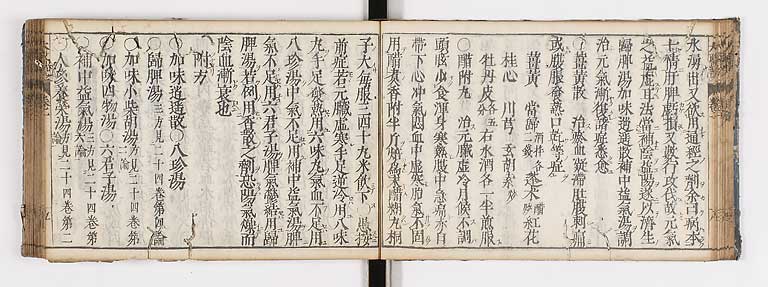 水湯世又欲用通經之劑余曰病本
七情肝脾虧損又數行攻伐故元氣
之益虛耳法當補陰益陽遂以濟生
歸脾湯加味逍遙散補中益氣湯調
治元氣漸復諸症悉愈
薑黃散 治瘀血凝滯肚腹刺痛
或腹脹發熱口乾等症
薑黃 當歸 莪朮 紅花
桂心 川芎 玄胡索
牡丹皮 右水酒各一半煎服
○醋附丸 治元臟虛冷月候不調
頭眩少食渾身寒熱腹中急痛赤白
帶下心冲氣悶血中虛寒胎氣不固
用醋煮香附半斤焙為末醋糊丸桐
子大每服三四十丸米飲下 愚按
前症若元臟虛寒手足逆冷用八味
丸手足發熱用六味丸氣血不足用
八珍湯中氣不足用補中益氣湯脾
氣不足用六君子湯脾氣鬱結用歸
脾湯若例用香散之劑恐腸氣極而
陰血漸衰也
附方
○加味逍遙散○八珍湯
○歸脾湯 方見二十四卷第 論
○加味小柴胡湯 方見二十四卷第
○加味四物湯○六君子湯
○補中益氣湯 方見二十四卷第
○人參養榮湯 方見二十四卷第二